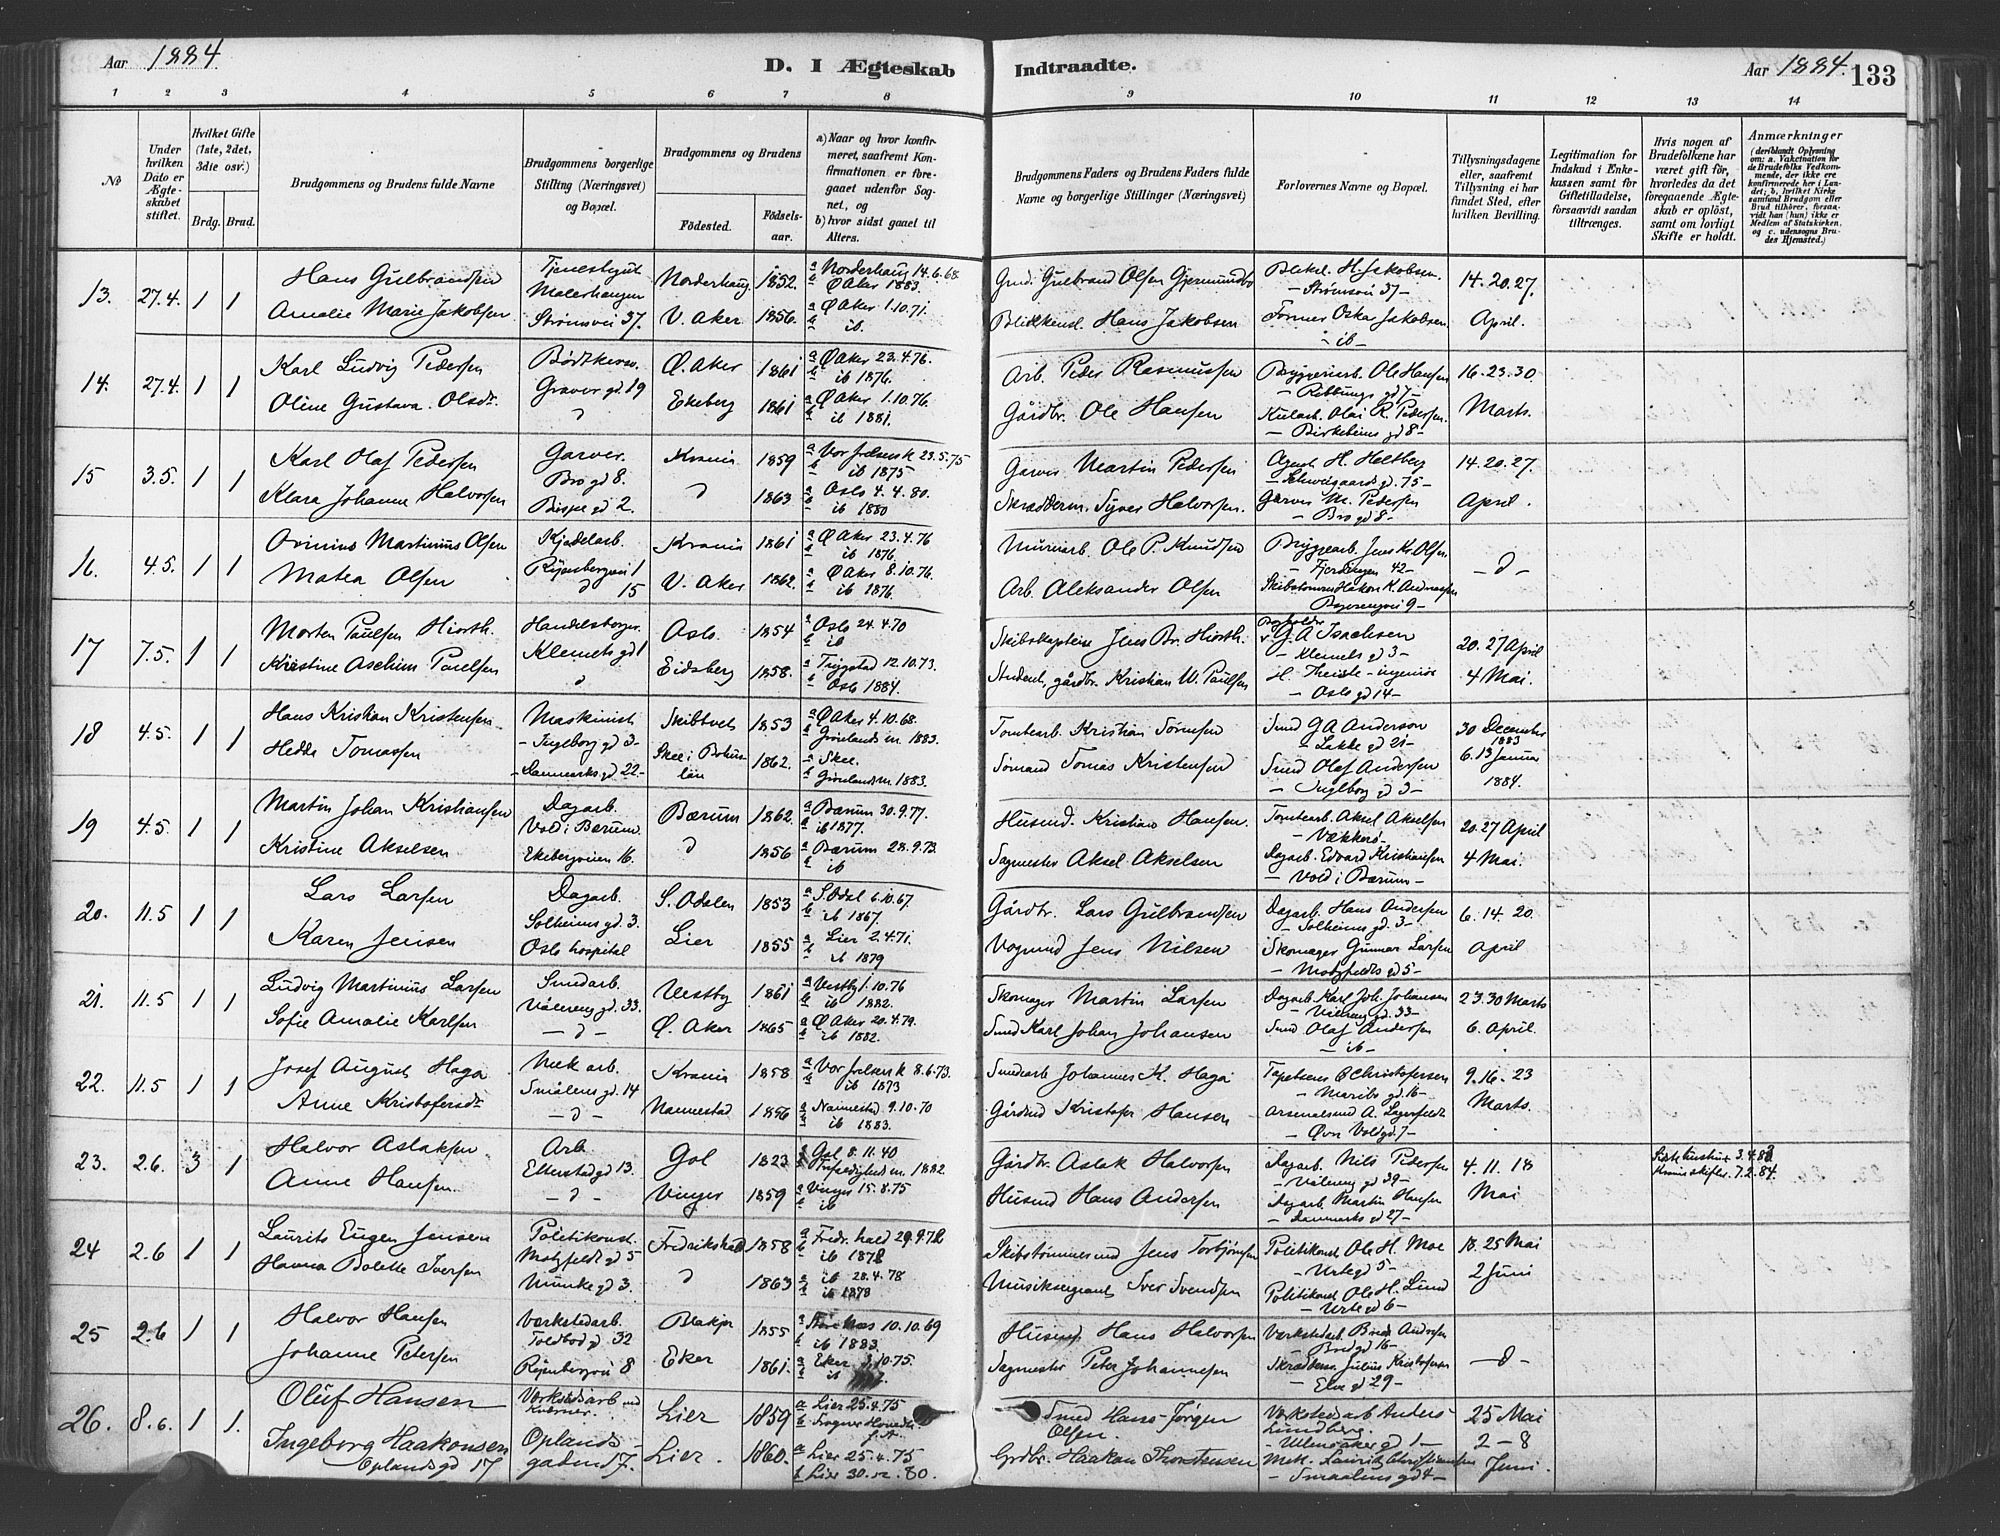 Aar 1884.
D. I Ægteskab
Indtraadte.
Aar 1884.
133
1 2 3 4 5 6 7 8
9 10 11 12 13 14
No
Under hvilken Dato er Ægteskabet stiftet.
Hvilket Gifte (1ste, 2det, 3die osv.)
Brdg. Brud.
Brudgommens og Brudens fulde Navne
Brudgommens borgerlige Stilling (Næringsvei) og Bopæl.
Brudgommens og Brudens
Födested.
Födsels-aar.
a) Naar og hvor konfirmeret, saafremt Konfirmationen er foregaaet udenfor Sognet, og
b) hvor sidst gaaet til Alters.
Brudgommens Faders og Brudens Faders fulde Navne og borgerlige Stillinger (Næringsvei)
Forlovernes Navne og Bopæl.
Tillysningsdagene eller, saafremt Tillysning ei har fundet Sted, efter hvilken Bevilling.
Legitimation for Indskud i Enkekassen samt for Giftetilladelse, forsaavidt saadan tiltrænges.
Hvis nogen af Brudefolkene har været gift för, hvorledes da det foregaaende Ægteskab er oplöst, samt om lovligt Skifte er holdt.
Anmærkninger
(deriblandt Oplysning om: a. Vakcination for de Brudefolks Vedkommende, der ikke ere konfirmerede her i Landet; b. hvilket Kirkesamfund Brudgom eller Brud tilhörer, forsaavidt han (hun) ikke er Medlem af Statskirken, og c. udensogns Brudes Hjemsted.)
13. 27.4. 1 1
Hans Gulbrandsen
Amalie Marie Jakobsen
Strømsvei 37.
Norderhaug 1852
V. Aker 1856.
a Norderhaug 14.6.68
b Ø Aker 1883.
a Ø Aker 1.10.71.
b ib.
Gmd. Gulbrand Olsen
Hans Jakobsen
H. Jakobsen.
- Strømsvei 37 -
Former Oskar Jakobsen.
- ib -
14. 20. 27.
April.
14. 27.4. 1 1
Karl Ludvig Pedersen
Oline Gustava Olsdr.
Graver gd 19
Ø. Aker 1861
Ekeberg 1861
a Ø Aker 23.4.76.
b ib 1876.
a Ø Aker 1.10.76.
b ib 1881.
Arb. Peder Rasmussen
Gårdbr. Ole Hansen
Bryggeriarb. Ole Hansen
Olai R. Pedersen.
- Birkeleins gd 8 -
16. 23. 30
Marts.
15 3.5. 1 1
Karl Olaf Pedersen
Klara Johanne Halvorsen
Garver.
Bro gd 8.
Bispe gd 2.
Krania 1859
d 1863
a Vor frelsers k 23.5.75
b ib 1875
a Oslo 4.4.80.
b ib 1880
Garver Martin Pedersen
Skræddern. Syver Halvorsen.
Agent H. Heltberg
- Schweigaards gd. 75 -
Garver M. Pedersen
- Bro gd 8 -
14. 20. 27.
April.
16. 4.5. 1 1
Martinius Olsen
Matea Olsen
Kjedelarb.
Ryenbergvei 1
d 15
Krania 1861
V. Aker 1862.
a Ø Aker 23.4.76
b ib 1876.
a Ø Aker 8.10.76.
b ib 1876.
Murerarb. Ole P. Knudsen
Arb. Aleksander Olsen
Bryggearb. Jens Kr. Olsen.
42 -
Hakon K. Andreassen
9 -
- d -
17 7.5. 1 1
Morten Paulsen Hiorth.
Kristine Aschim Paulsen
Handelsborger.
Klemets gd 1
d
Oslo. 1854
Eidsberg 1858.
a Oslo 24.4.70
b ib
a Trygstad 12.10.73.
b Oslo 1884.
Skibskapteine Jens Br. Hiorth.
Student, gårdbr. Kristian W. Paulsen
G. A. Isachsen
- Klemets gd 3 -
H. Theiste - ingeniør
- Oslo gd 14 -
20. 27 April
4 Mai.
18 4.5. 1 1
Hans Kristian Kristensen
Hedda Tomassen
Maskinist
- Ingeborg gd 3 -
- Danmarks gd. 22 -
Skibtvet 1853
Skee i Bohuslän 1862.
a Ø Aker 4.10.68
b Grønlands m. 1883.
a Skee.
b Grønlandsm. 1883.
Tomtearb. Kristian Sørensen
Sømand Tomas Kristensen
Smed G A Anderson
- Lakke gd 21 -
Smed Olaf Andersen
- Ingeborg gd 3 -
30 December 1883
6. 13 Januar
1884.
19 4.5. 1 1
Martin Johan Kristiansen
Kristine Akselsen
Dagarb.
Vold i Bærum.
Ekebergveien 16.
Bærum 1862.
d 1856
a Bærum 30.9.77.
b ib 1877.
a Bærum 28.9.73.
b ib
Husmd. Kristian Hansen.
Sagmester Aksel Akselsen
Tomtearb. Aksel Akselsen
- Vækkerø -
Dagarb. Edvard Kristiansen
- Vold i Bærum -
20. 27 April
4 Mai.
20. 11.5 1 1
Lars Larsen
Karen Jensen
Dagarb.
Solheims gd. 3.
Oslo hospital
S. Odalen 1853
Lier 1855
a S. Odal 6.10.67.
b ib 1867
a Lier 2.4.71.
b ib 1879
Gårdbr. Lars Gulbrandsen
Jens Nilsen
Dagarb. Hans Andersen
- Solheims gd. 3 -
Skomager Gunnar Larsen
- Motzfeldts gd 5 -
6. 14. 20.
April
21. 11.5 1 1
Ludvig Martinius Larsen
Sofie Amalie Karlsen
Smedarb.
Våleren gd. 33.
- d -
Vestby 1861
Ø. Aker 1865
a Vestby 1.10.76
b ib 1882.
a Ø Aker 20.4.79.
b ib 1882.
Skomager Martin Larsen
Smed Karl Johan Johansen
Dagarb. Karl Joh. Johansen
- Våleren gd. 33 -
Smed Olaf Andersen
- ib -
23. 30 Marts
6. April.
22. 11.5 1 1
Josef August Haga
Anne Kristofersdr.
Mek arb.
Smålens gd. 14
- d -
Krania 1858
Nannestad 1856
a Vor frelsers k 8.6.73.
b ib 1873
a Nannestad 9.10.70
b ib 1883.
Smedearb Johannes K. Haga
Gårdmd Kristofer Hansen
Tapetsens O Christofersen
- Maribo gd. 16 -
Arsenalsmd A. Lagerfeldt
- Øvre Vold gd. 7 -
9. 16. 23
Marts.
23. 2.6. 3 1
Halvor Aslaksen
Anne Hansen.
Arb.
Etterstad gd 13.
- d -
Gol 1823
Vinger 1859
a Gol 8.11.40
b Trefoldighed m. 1882.
a Vinger 15.8.75
b ib
Gårdbr. Aslak Halvorsen
Husmd Hans Andersen
Dagarb. Nils Pedersen
- Våleren gd 39 -
Dagarb. Martin Hansen
- Danmarks gd 27 -
4. 11. 18
Mai
Sidste hustru
7.2.84.
24 2.6 1 1
Laurits Eugen Jensen
Hanna Bolette Iversen
Politikonst
Motzfeldt gd 5
Munke gd 3.
Fredrikshald 1858
d 1863
a Fredr. hald 29.9.72
b ib
a ib 28.4.78
b ib 1878
Skibstømmermd Jens Torbjørnsen
Musiksergeant Iver Svendsen
Politikonst Ole H. Moe
- Urte gd 5 -
Politikonst Ole H. Lund
- Urte gd 6 -
18. 25 Mai
2 Juni
25 2.6 1 1
Halvor Hansen
Johanne Petersen
Værkstedarb.
Toldbod gd. 32
Ryenbergvei 8
Blakjer 1855
Eker 1861.
10.10.69
b ib 1883.
a Eker 3.10.75.
b ib
Husmd. Hans Halvorsen
Sagmester Peter Johannesen
Værkstedarb. Andersen
- Bred gd 16 -
Skræddersv. Julius Kristofersen
- Elve gd 29 -
- d -
26. 8.6. 1 1.
Oluf Hansen
Ingeborg Haakonsen
Oplands gd 17
Værkstedsarb ved Kværner.
Oplands-
gaden 17.
Lier 1859
Lier. 1860.
a Lier 25.4.75
a Lier 25.4.75
b Lier 30.12.80.
Smed Hans Jørgen
Olsen.
Grdbr. Haakon Thorstensen
Værkstedsarb Anders
Lundberg.
- Ulensaker gd 1 -
Mek. Laurits Christiansen
- Smaalens gd 4 -
25 Mai
2 - 8
Juni.